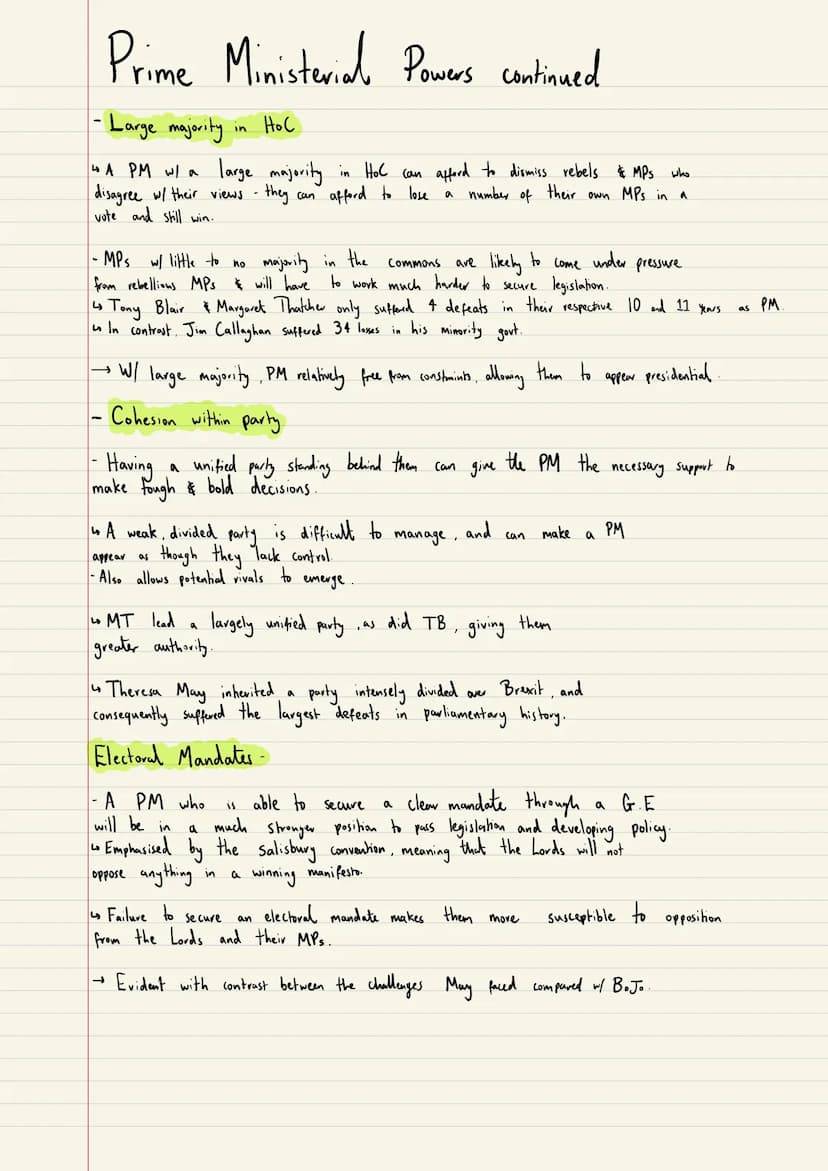 Prime Ministerial Powers continued
- Large majority in HoC
↳ A PM w/ a large majority in HoC can afford to dismiss rebels & MPs who
disagree w/ their views - they can afford to lose a number of their own MPs in a
vote and still win.
- MPs w/ little to no majority in the commons are likely to come under pressure
from rebellious MPs & will have to work much harder to secure legislation.
↳ Tony Blair & Margaret Thatcher only suffered 4 defeats in their respective 10 and 11 years as PM.
↳ In contrast, Jim Callaghan suffered 34 loses in his minority govt.
→ W/ large majority, PM relatively free from constraints, allowing them to appear presidential.
- Cohesion within party
- Having a unified party standing behind them can give the PM the necessary support to
make tough & bold decisions.
↳ A weak, divided party is difficult to manage, and can make a PM
appear as though they lack control.
- Also allows potential rivals to emerge.
↳ MT lead a largely unified party, as did TB, giving them
greater authority.
↳ Theresa May inherited a party intensely divided over Brexit, and
consequently suffered the largest defeats in parliamentary history.
Electoral Mandates -
- A PM who is able to secure a clear mandate through a G.E
will be in a much stronger position to pass legislation and developing policy.
↳ Emphasised by the Salisbury convention, meaning that the Lords will not
oppose anything in a winning manifesto.
↳ Failure to secure an electoral mandate makes them more susceptible to opposition
from the Lords and their MPs.
→ Evident with contrast between the challenges May faced compared w/ B.J.